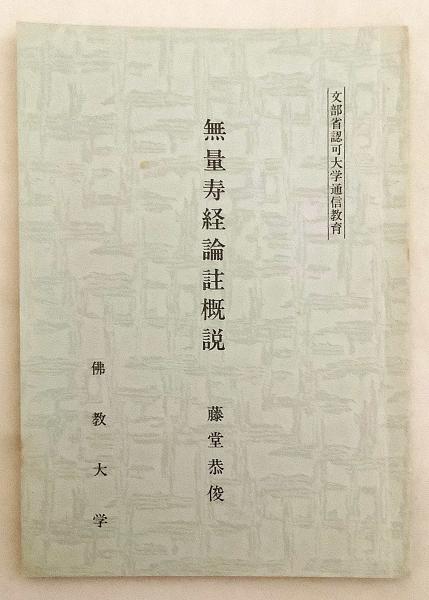 文部省認可大学通信教育
無量寿経論註概説
藤堂恭俊
佛教大学